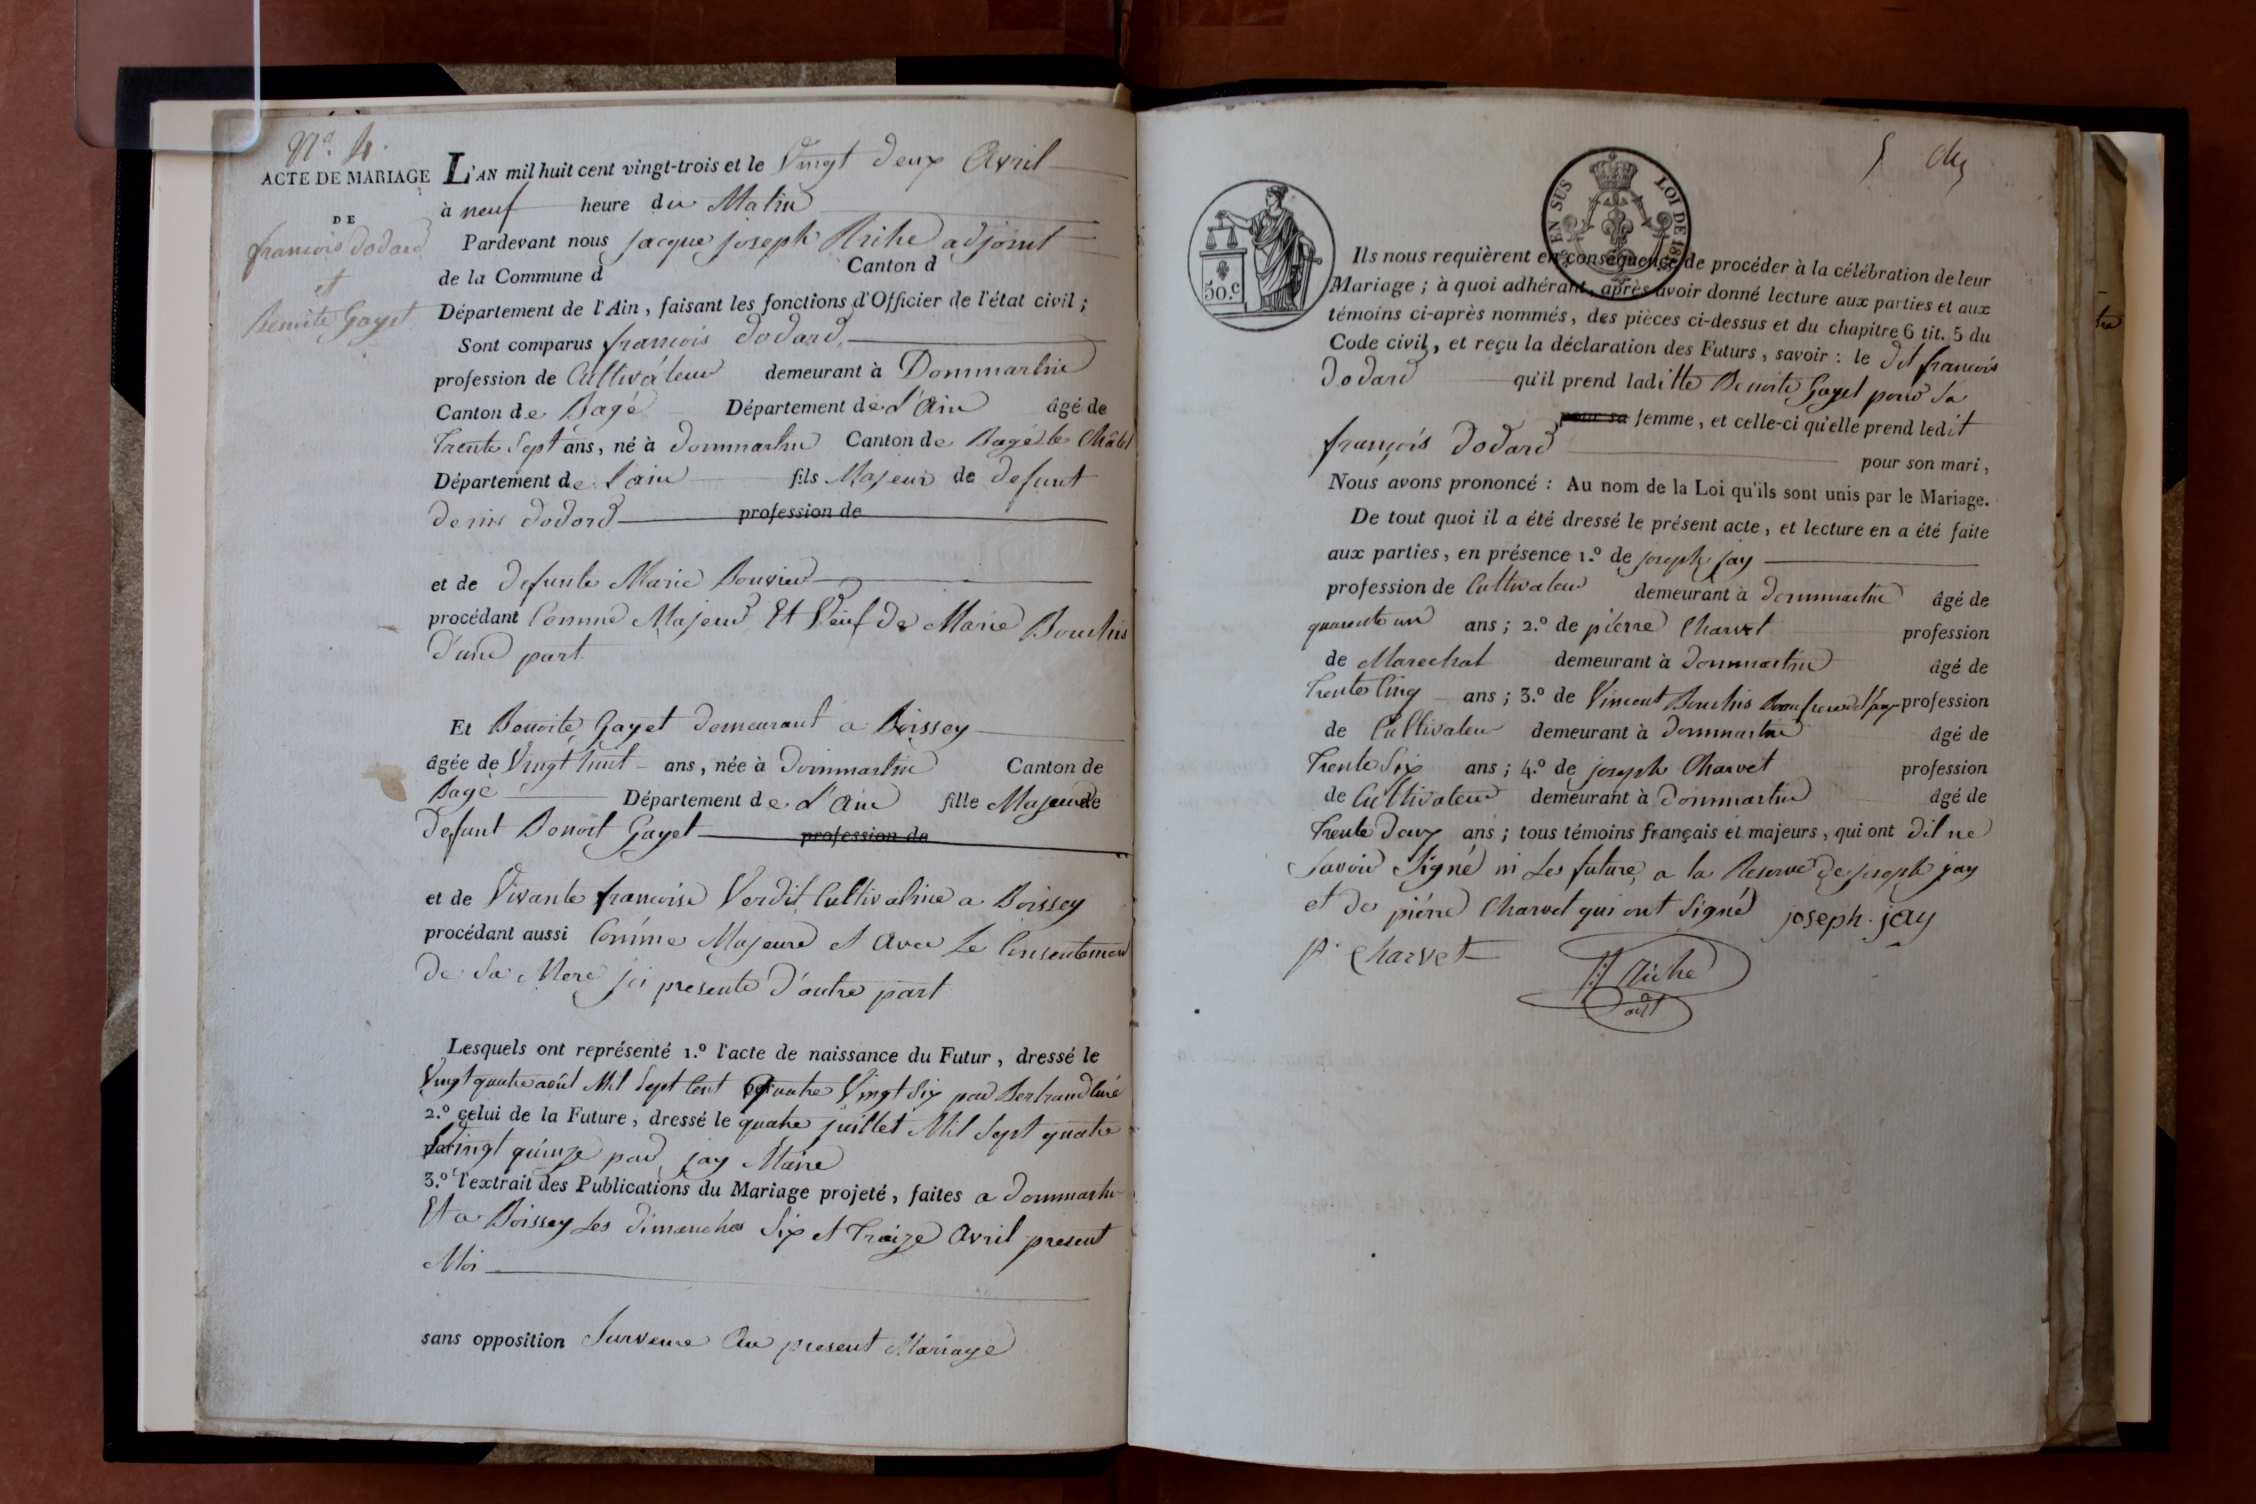 N.o 4.
ACTE DE MARIAGE
DE
françois dodard
et
Benoite Gayet
L'AN mil huit cent vingt-trois et le Vingt deux Avril
à neuf heure du Matin
Pardevant nous jacque joseph Riche adjoint
de la Commune d Canton d
Département de l'Ain, faisant les fonctions d'Officier de l'état civil;
Sont comparus françois dodard
profession de Cultivateur demeurant à Dommartin
Canton de Bagé Département de L'Ain âgé de
Trente Sept ans, né à dommartin Canton de Bagé le Châtel
Département de L'ain fils Majeur de defunt
denis dodard profession de
et de defunte Marie Bouvier
procédant Comme Majeur Et Veuf de Marie Bouchis
d'une part
Et Benoite Gayet demeurant a Boissey
âgée de Vingt huit ans, née à dommartin Canton de
Bagé Département de L'Ain fille Majeure de
defunt Benoit Gayet profession de
et de Vivante françoise Verdit Cultivatrice a Boissey
procédant aussi Comme Majeure et Avec Le Consentement
de Sa Mere ici presente d'autre part
Lesquels ont représenté 1.º l'acte de naissance du Futur, dressé le
Vingt quatre août Mil Sept Cent quatre Vingt Six par Bertrand Curé
2.º celui de la Future, dressé le quatre juillet Mil Sept quatre
Vingt quinze par jay Maire
3.º l'extrait des Publications du Mariage projeté, faites a dommartin
Et a Boissey Les dimanches Six et Treize Avril present
Moi
sans opposition Survenue Au present Mariage
5
50.c
EN SUS
LOI DE 18
Ils nous requièrent en conséquence de procéder à la célébration de leur
Mariage; à quoi adhérant, après avoir donné lecture aux parties et aux
témoins ci-après nommés, des pièces ci-dessus et du chapitre 6 tit. 5 du
Code civil, et reçu la déclaration des Futurs, savoir: le dit françois
dodard qu'il prend laditte Benoite Gayet pour Sa
pour sa femme, et celle-ci qu'elle prend ledit
françois dodard pour son mari,
Nous avons prononcé: Au nom de la Loi qu'ils sont unis par le Mariage.
De tout quoi il a été dressé le présent acte, et lecture en a été faite
aux parties, en présence 1.º de joseph jay
profession de Cultivateur demeurant à dommartin âgé de
quarente un ans; 2.º de pierre Charvet profession
de Marechal demeurant à dommartin âgé de
Trente Cinq ans; 3.º de Vincent Bouchis profession
de Cultivateur demeurant à dommartin âgé de
Trente Six ans; 4.º de joseph Charvet profession
de Cultivateur demeurant à dommartin âgé de
Trente Deux ans; tous témoins français et majeurs, qui ont dit ne
Savoir Signé ni Les future, a la Reserve de joseph jay
et de piérre Charvet qui ont Signé joseph.jay
p. Charvet
Riche
adjt